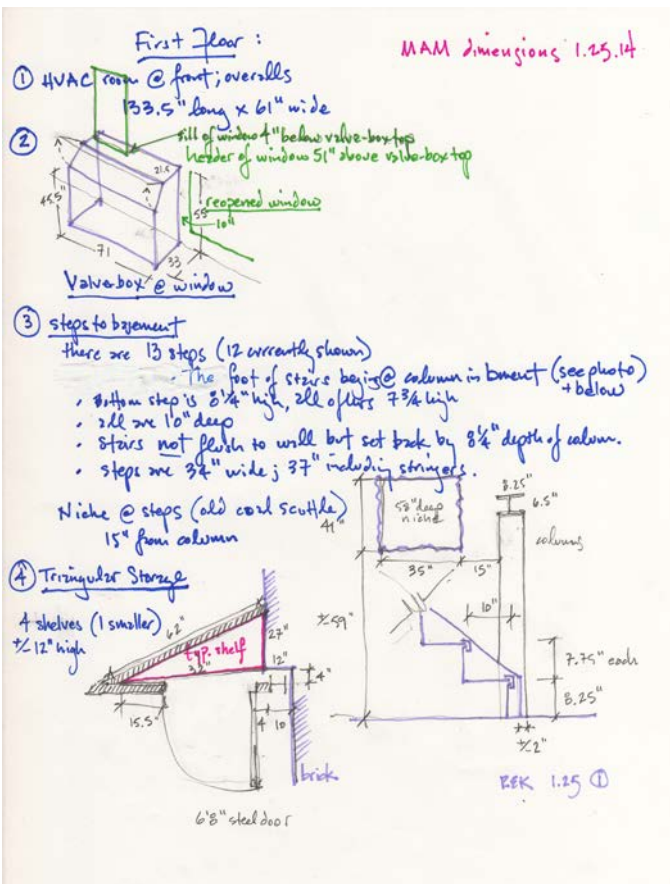 First Floor :
MAM dimensions 1.25.14
① HVAC room @ front; overalls
133.5" long x 61" wide
②
sill of window 4" below valve-box top
header of window 51" above valve-box top
21.5
45.5"
55
reopened window
10"
71
33
Valve box @ window
③ steps to basement
there are 13 steps (12 currently shown)
· The foot of stairs begins @ column in bment (see photo)
+ below
· Bottom step is 8 1/4" high, all others 7 3/4 high
· all are 10" deep
· stairs not flush to wall but set back by 8 1/4" depth of column.
· steps are 34" wide; 37" including stringers.
Niche @ steps (old coal scuttle)
15" from column
41"
58" deep
niche
8.25"
6.5"
column
35"
15"
④ Triangular Storage
4 shelves (1 smaller)
+/- 12" high
62"
27"
typ. shelf
12"
4"
15.5"
4
10
brick
6'8" steel door
+/- 59"
10"
7.75" each
8.25"
+/- 2"
REK 1.25 ①